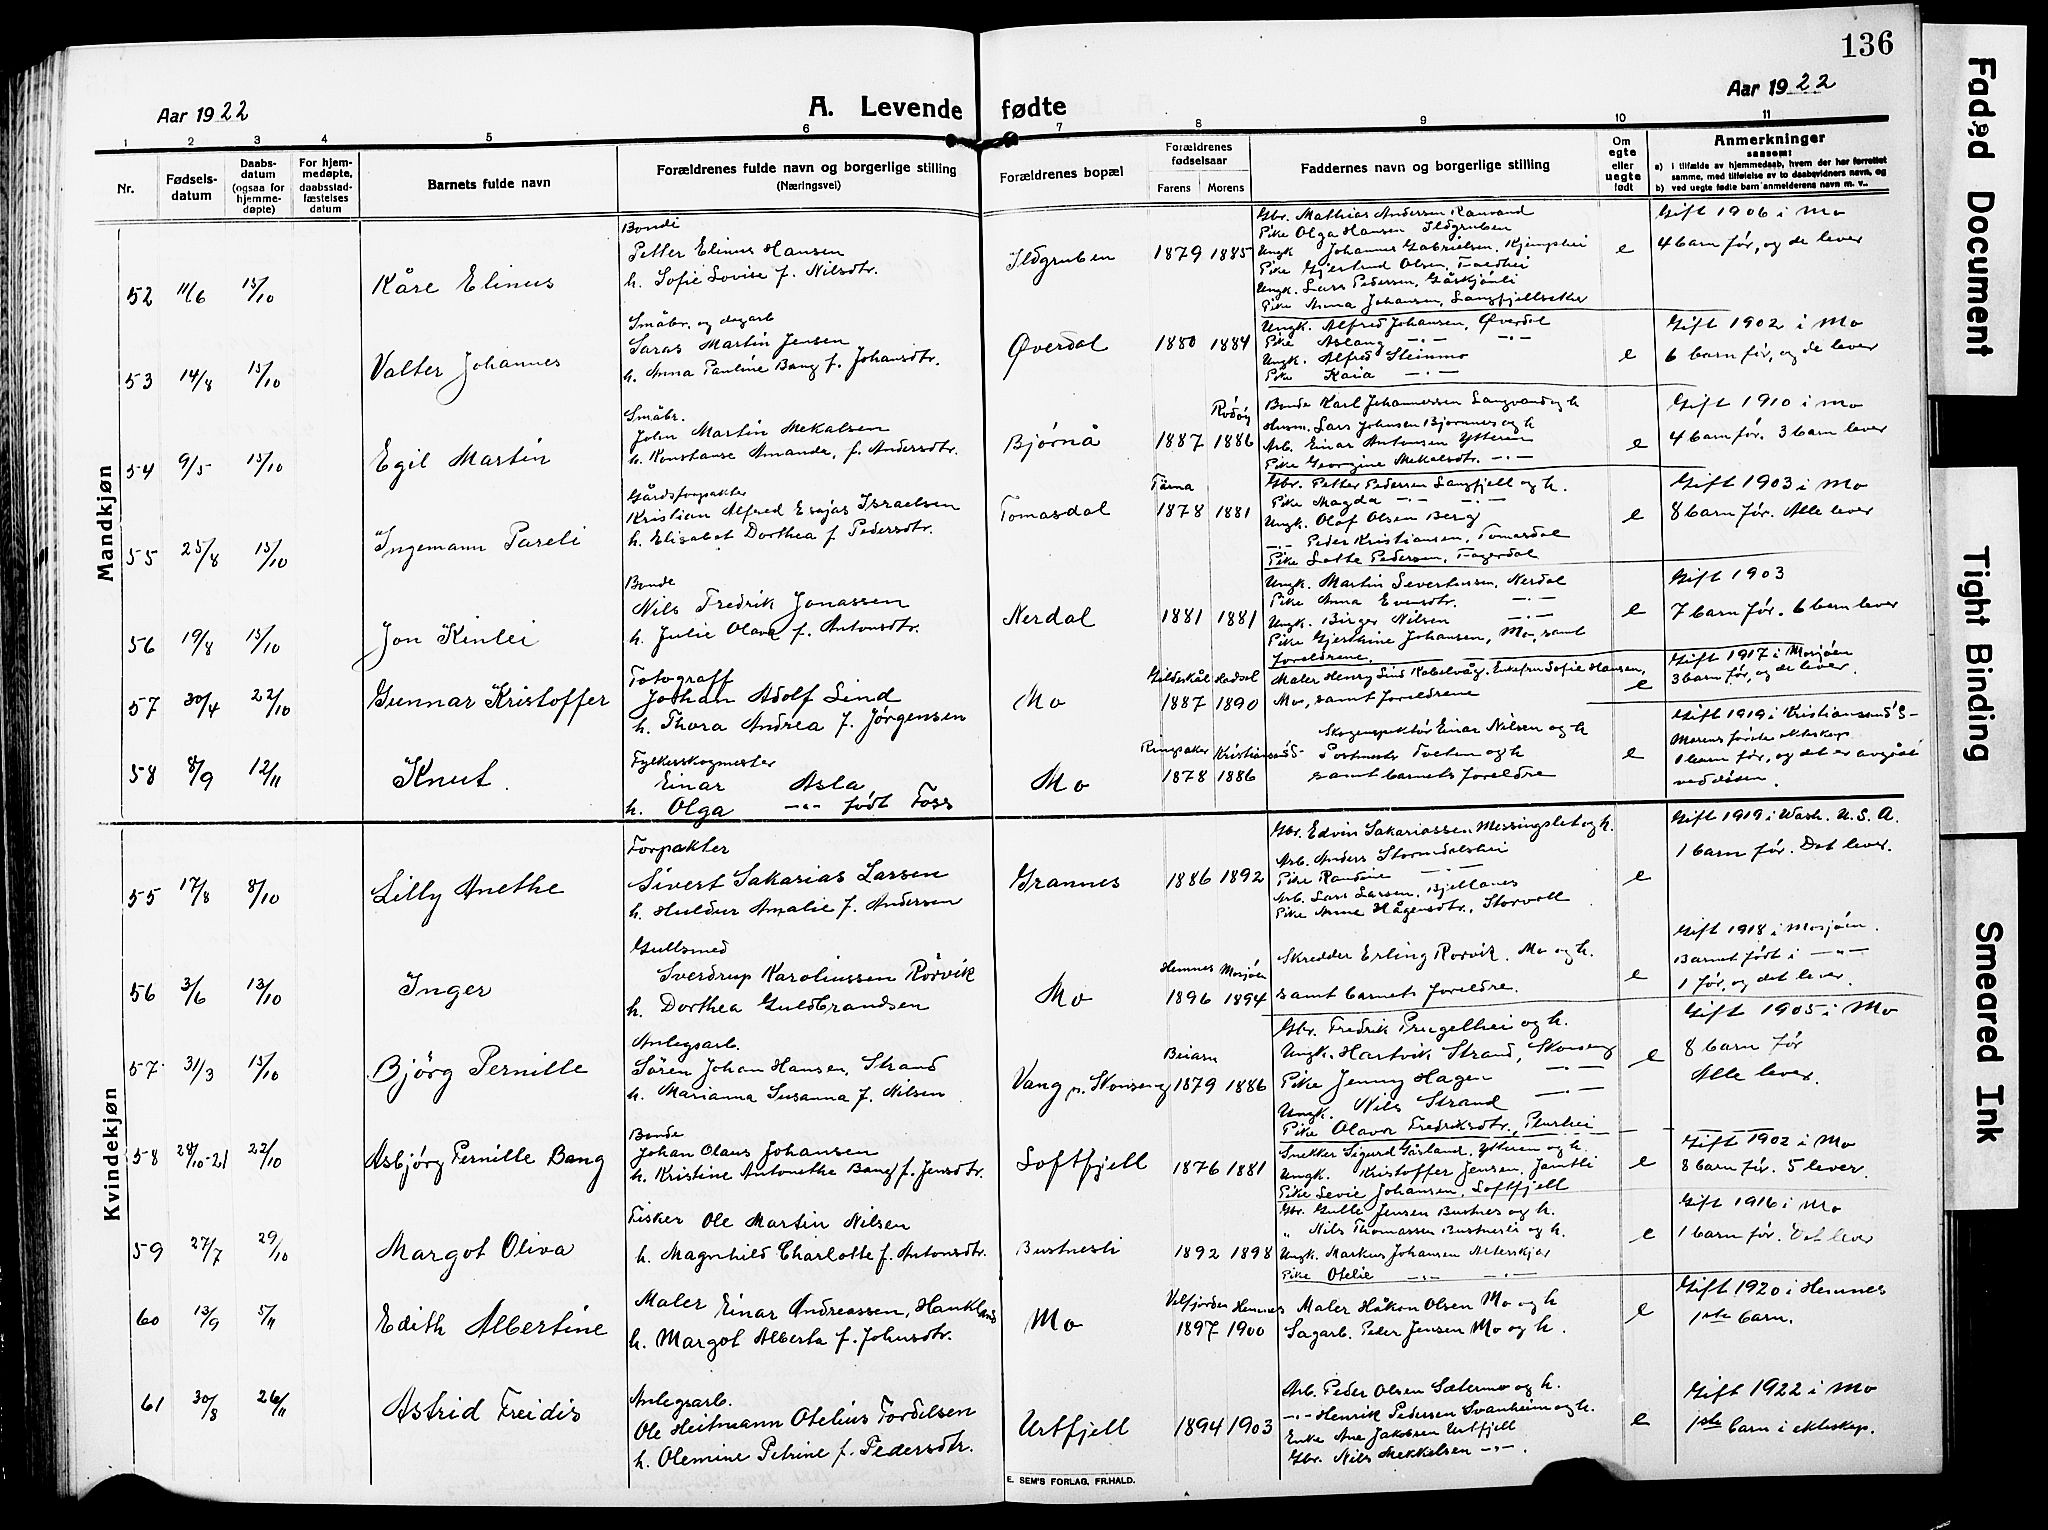 136
Aar 1922
A. Levende fødte
Aar 1922
1 2 3 4 5 6 7 8 9 10 11
Nr.
Fødsels-
datum
Daabs-
datum
(ogsaa for
hjemme-
døpte)
For hjem-
medøpte,
daabsstad-
fæstelses
datum
Barnets fulde navn
Forældrenes fulde navn og borgerlige stilling
(Næringsvei)
Forældrenes bopæl
Forældrenes
fødselsaar
Farens Morens
Faddernes navn og borgerlige stilling
Om
egte
eller
uegte
født
Anmerkninger
saasom:
a) i tilfælde av hjemmedaab, hvem der har forrettet
samme, med tilføielse av to daabsvidners navn, og
b) ved uegte fødte barn anmelderens navn m. v..
Mandkjøn
52 11/6 15/10 Kåre Elinus
Bonde
Petter Elinus Hansen
h. Sofie Lovise f. Nilsdtr.
Ildgruben 1879 1885
Gbr. Mathias Andersen Ranvand
Pike Olga Hansen Ildgruben
Ungk Johannes Gabrielsen, Kjemphei
Pike Gjertrud Olsen,
Ungk. Lars Pedersen,
Pike Anna Johansen, Langfjellseter
e
Gift 1906 i Mo
4 barn før, og de lever
53 14/8 15/10 Valter Johannes
Småbr. og dagarb
Saras Martin Jensen
h. Anna Pauline Bang f. Johansdtr.
Øverdal 1880 1884
Ungk. Alfred Johansen, Øverdal
Pike Aslaug -"- -"-
Ungk. Alfred Steinmo
Pike Kaia -"-
e
Gift 1902 i Mo
6 barn før, og de lever
54 9/5 15/10 Egil Martin
Småbr.
John Martin Mekalsen
h. Konstanse Amanda, f. Andersdtr.
Bjørnå Rödöy 1887 1886
Bonde Karl Johannessen Langvand og h
Husm. Lars Johnsen Bjørnnes og h
Arb. Einar Antonsen Ytteren
Pike Georgine Mekalsdtr. -"-
e
Gift 1910 i Mo
4 barn før. 3 barn lever
55 25/8 15/10 Ingemann Pareli
Gårdsforpakter
Kristian Alfred Esajas Israelsen
h. Elisabet Dorthea f Pedersdtr.
Tomasdal Tärna 1878 1881
Gbr. Petter Pedersen Langfjell og h.
Pike Magda -"- -"-
Ungk. Olaf Olsen Berg
-"- Peder Kristiansen, Tomasdal
Pike Lotte Pedersen, Fagerdal
e
Gift 1903 i Mo
8 barn før. Alle lever
56 19/8 15/10 Jon Kinlei
Bonde
Nils Fredrik Jonassen
h. Julie Olava f. Antonsdtr.
Nerdal 1881 1881
Ungk. Martin Sivertsen, Nerdal
Pike Anna Evensdtr. -"-
Ungk. Birger Nilsen -"-
Pike Gjertine Johansen, Mo, samt
foreldrene.
e
Gift 1903
7 barn før. 6 barn lever
57 30/4 22/10 Gunnar Kristoffer
Fotograff
Johan Adolf Lind
h. Thora Andrea f. Jørgensen
Mo Gildeskål Hadsel 1887 1890
Maler Henry Lind Kabelvåg, Enkefru Sofie Hansen,
Mo, samt foreldrene
e
Gift 1917 i Mosjöen
3 barn før, og de lever.
58 8/9 12/11 Knut
Fylkesskogmester
Einar Asla,
h. Olga -"- født Foss
Mo Ringsaker Kristiansund S- 1878 1886
Skoginspektør Einar Nilsen og h
Postmester Tveten og h
samt barnets foreldre
e
Gift 1919 i Kristiansund S-
Morens første ekteskap
1 barn før, og det er avgått
ved døden.
Kvindekjøn
55 17/8 8/10 Lilly Anethe
Forpakter
Sivert Sakarias Larsen
h. Huldur Amalie f. Andersen
Grannes 1886 1892
Gbr. Edvin Sakariassen Messingslet og h.
Arb. Anders Stormdalshei
Pike Randine -"-
Arb. Lars Larsen, Bjellånes
Pike Anne Hågensdtr., Storvoll
e
Gift 1919 i Wash. U.S.A.
1 barn før. Det lever.
56 3/6 13/10 Inger
Gullsmed
Sverdrup Karoliussen Rörvik
h. Dorthea Guldbrandsen
Mo Hemnes Mosjöen 1896 1894
Skredder Erling Rorvik, Mo og h.
samt barnets foreldre.
e
Gift 1918 i Mosjöen.
Barnet født i -"-
1 før, og det lever.
57 31/3 15/10 Björg Pernille
Anlegsarb.
Sören Johan Hansen, Strand
h. Marianna Susanna f. Nilsen
Vang p. Skonseng Beiarn 1879 1886
Gbr. Fredrik Prugelhei og h.
Ungk. Hartvik Strand, Skonseng
Pike Jenny Hagen -"-
Ungk. Nils Strand -"-
Pike Olava Fredriksdtr.,
e
Gift 1905 i Mo
8 barn før
Alle lever.
58 28/10-21 22/10 Asbjörg Pernille Bang
Bonde
Johan Olaus Johansen
h. Kristine Antonethe Bang f. Jensdtr.
Loftfjell 1876 1881
Snekker Sigurd Gårland, Ytteren og h.
Ungk. Kristoffer Jensen, Jamtli
Pike Levie Johansen, Loftfjell
e
Gift 1902 i Mo
8 barn før. 5 lever.
59 27/7 29/10 Margot Oliva
Fisker Ole Martin Nilsen
h. Magnhild Charlotte f. Antonsdtr.
Bustnesli 1892 1898
Gbr. Gulle Jensen Bustnes og h.
" Nils Thomassen Bustnesli og h.
Ungk. Markus Johansen Alterskjær
Pike Otelie -"- -"-
e
Gift 1916 i Mo
1 barn før. Det lever
60 13/9 5/11 Edith Albertine
Maler Einar Andreassen, Haukland
h. Margot Alberta f. Johnsdtr.
Mo Velfjorden Hemnes 1897 1900
Maler Håkon Olsen Mo og h
Sagarb. Peder Jensen Mo og h.
e
Gift 1920 i Hemnes
1ste barn.
61 30/8 26/11 Astrid Freidis
Anlegsarb.
Ole Heitmann Otelius Fordelsen
h. Olemine Petrine f. Pedersdtr.
Urtfjell 1894 1903
Arb. Peder Olsen Sætermo og h.
-"- Henrik Pedersen Svanheim og h.
Enke Ane Jakobsen Urtfjell
Gbr. Nils Mekkelsen -"-
e
Gift 1922 i Mo
1ste barn i ekteskap.
E. SEM'S FORLAG, FR.HALD.
Faded Document
Tight Binding
Smeared Ink